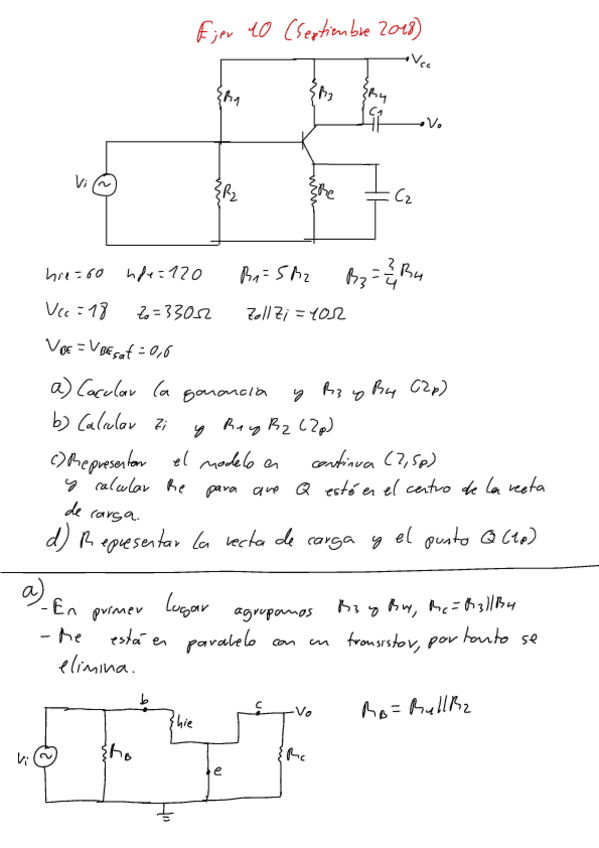 Ejer 10 (Septiembre 2018)
Vcc
R1
R3
R4
C1
Vo
Vi
R2
Re
C2
hie=60 hfe=120 R1=5R2 R3=3/4R4
Vcc=18 Zo=330Ω Zo//Zi=10Ω
VBE=VBEsat=0,6
a) Cacular la ganancia y R3 y R4 (2p)
b) Calcular Zi y R1 y R2 (2p)
c) Representar el modelo en continua (2,5p)
y calcular Re para que Q esté en el centro de la recta
de carga.
d) Representar la recta de carga y el punto Q (1p)
a)
-En primer lugar agrupamos R3 y R4, Rc=R3//R4
-Re está en paralelo con un transistor, por tanto se
elimina.
b
c
Vo
hie
RB = R1//R2
Vi
RB
e
Rc